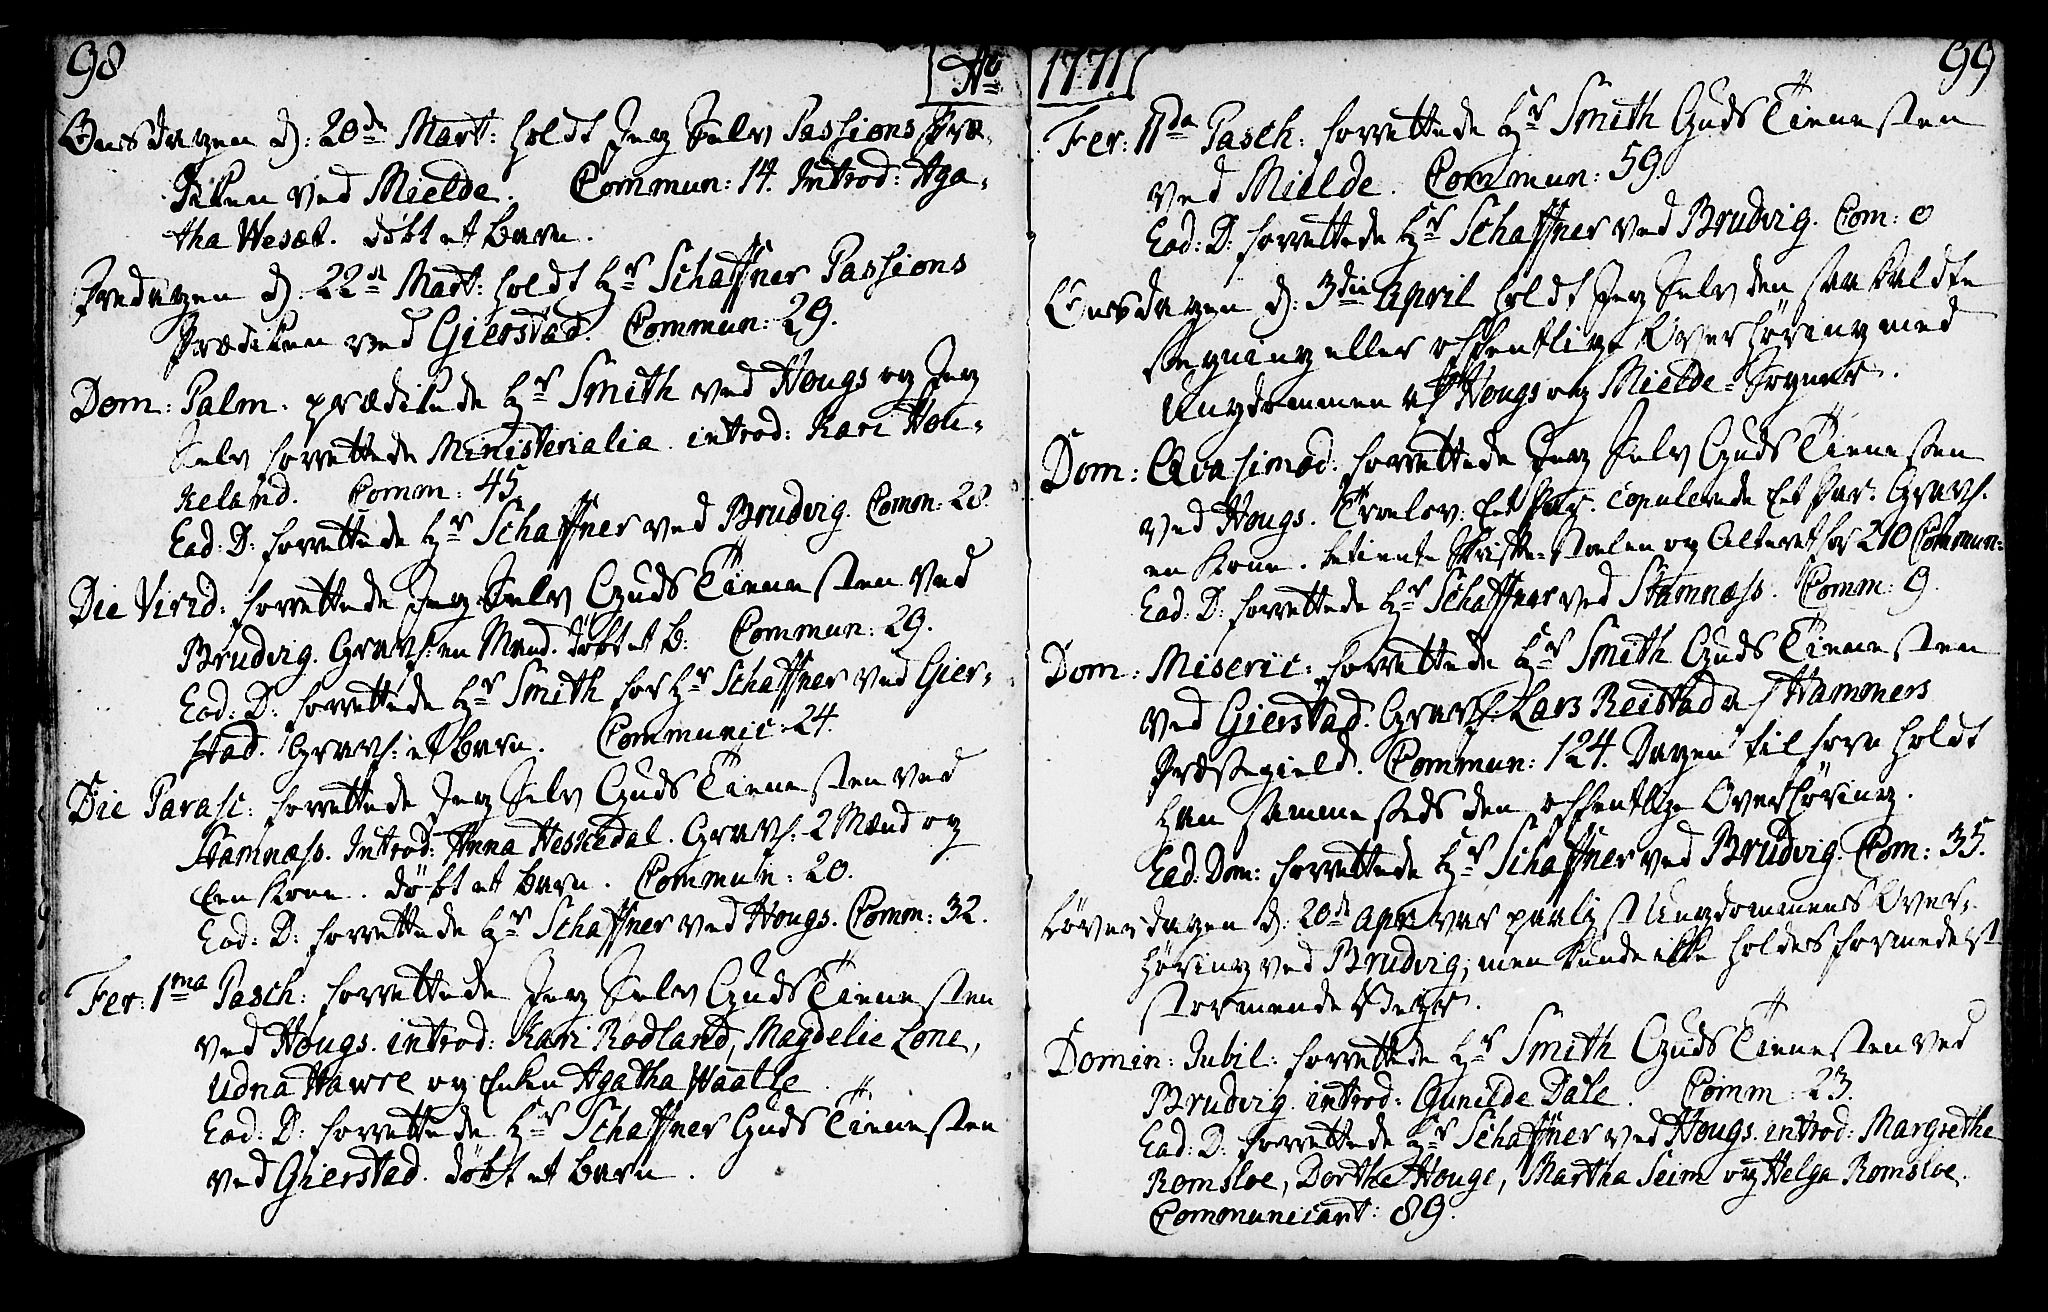 98
Ao
Onsdagen d: 20de Mart: holdt Jeg Selv Passions Præ-
diken ved Mielde. Commun: 14. Introd: Aga-
tha Wesæt. døbt et Barn.
Fredagen d: 22de Mart: holdt Hr Schaffner Passions
Prædiken ved Gierstad. Commun: 29.
Dom: Palm. prædikede Hr Smith ved Hougs og Jeg
Selv forrettede Ministerialia. introd: Kari Hou-
keland. Comm: 45.
Ead: D: forrettede Hr Schaffner ved Brudvig. Comm: 28.
Die Virid: forrettede Jeg Selv Guds Tienesten ved
Brudvig. Gravf: en Mand. døbt et B: Commun: 29.
Ead: D: forrettede Hr Smith for Hr Schaffner ved Gier-
stad. Gravf: et Barn. Communic: 24.
Die Parasc: forrettede Jeg Selv Guds Tienesten ved
Stamnæss. Introd: Anna Heskedal. Gravf: 2 Mænd og
Een Kone. døbt et Barn. Commun: 20.
Ead: D: forrettede Hr Schaffner ved Hougs. Comm: 32.
Fer: 1ma Pasch: forrettede Jeg Selv Guds Tienesten
ved Hougs. introd: Kari Rodland, Magdelie Lone,
Udna Hawre og Enken Agatha Waatle.
Ead: D: forrettede Hr Schaffner Guds Tienesten
ved Gierstad. døbt et Barn.
1771
99
Fer: IIda Pasch: forrettede Hr Smith Guds Tienesten
ved Mielde. Commun: 59.
Ead: D: forrettede Hr Schaffner ved Brudvig. Com: 0
Onsdagen d: 3die April holdt Jeg Selv den saa kaldte
Stegning eller offentlige Overhøring med
Ungdommen af Hougs og Mielde-Sogner.
Dom: Qvasimod: forrettede Jeg Selv Guds Tienesten
ved Hougs. Troelov: Et Par. copulerede Et Par. Gravf:
en Kone. betiente Skrifte-Stoelen og Alteret for 210 Commun:
Ead: D: forrettede Hr Schaffner ved Stamnæss. Comm: 9.
Dom: Miseric: forrettede Hr Smith Guds Tienesten
ved Gierstad. Gravf: Lars Reistad af Hammers
Præstegield. Commun: 124. Dagen tilforn holdt
han sammesteds den offentlige Overhøring.
Ead: Dom: forrettede Hr Schaffner ved Brudvig. Com: 35.
Løverdagen d: 20de Apr var paalyst Ungdommens Over-
høring ved Brudvig, men kunde ikke holdes formedelst
stormende Veyr.
Domin: Jubil: forrettede Hr Smith Guds Tienesten ved
Brudvig. introd: Gunilde Dale. Comm: 23.
Ead: D: forrettede Hr Schaffner ved Hougs. introd: Margrethe
Romsloe, Dorthe Houge, Martha Seim og Helga Romsloe.
Communicant: 89.